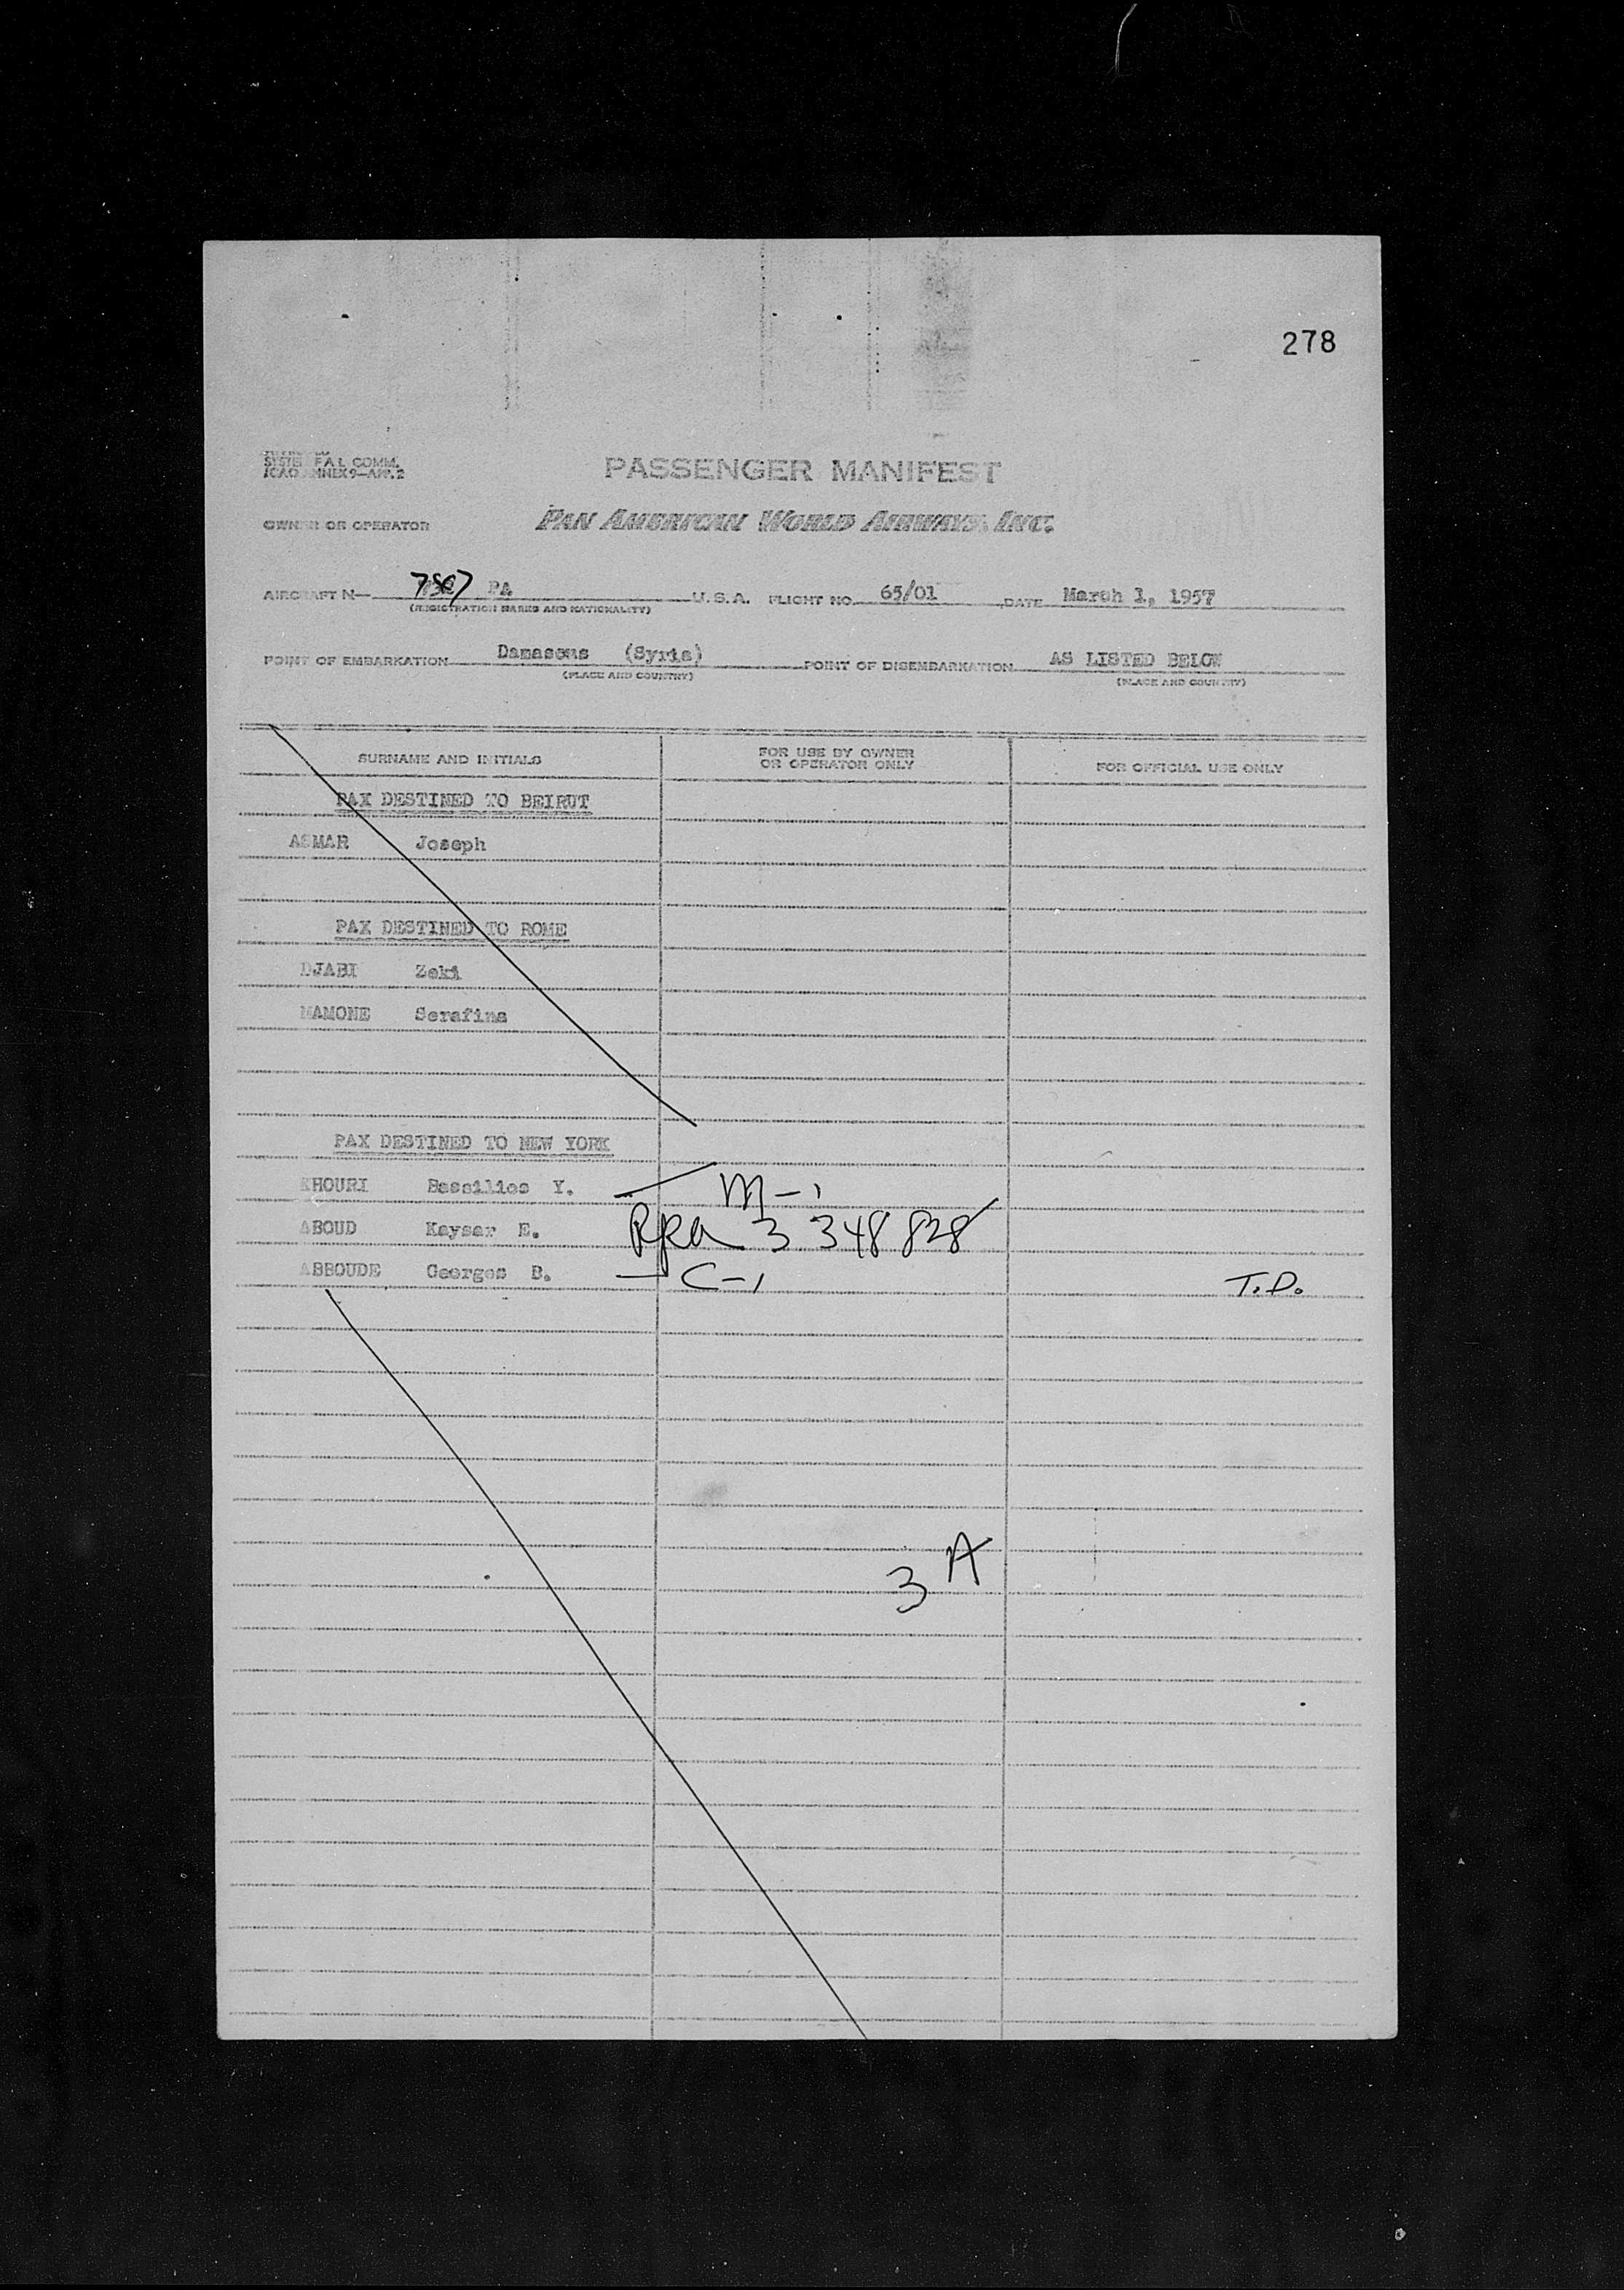 278
SYSTEM FAL COMM.
ICAO ANNEX 9—APP. 2
PASSENGER MANIFEST
OWNER OR OPERATOR PAN AMERICAN WORLD AIRWAYS, INC.
AIRCRAFT N— PA U.S.A. FLIGHT NO. 65/01 DATE March 1, 1957
(REGISTRATION MARKS AND NATIONALITY)
POINT OF EMBARKATION Damascus (Syria) POINT OF DISEMBARKATION AS LISTED BELOW
(PLACE AND COUNTRY) (PLACE AND COUNTRY)
SURNAME AND INITIALS FOR USE BY OWNER OR OPERATOR ONLY FOR OFFICIAL USE ONLY
PAX DESTINED TO BEIRUT
ASMAR Joseph
PAX DESTINED TO ROME
DJABI Zeki
MAMONE Serafina
PAX DESTINED TO NEW YORK
KHOURI Bassilios Y. — M-1
ABOUD Kaysar E. 3 348 828
ABBOUDE Georges B. — C-1 T.D.
3 A